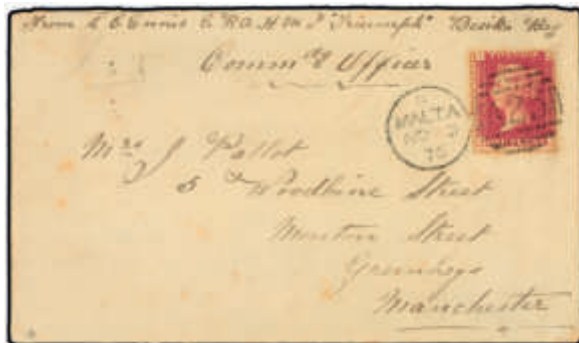 From E C Ennis E R A H M S "Triumph" Besika Bay
Commdg Officer
MALTA
NO
76
Mrs J Pallot
5 Woodbine Street
Street
Greenheys
Manchester